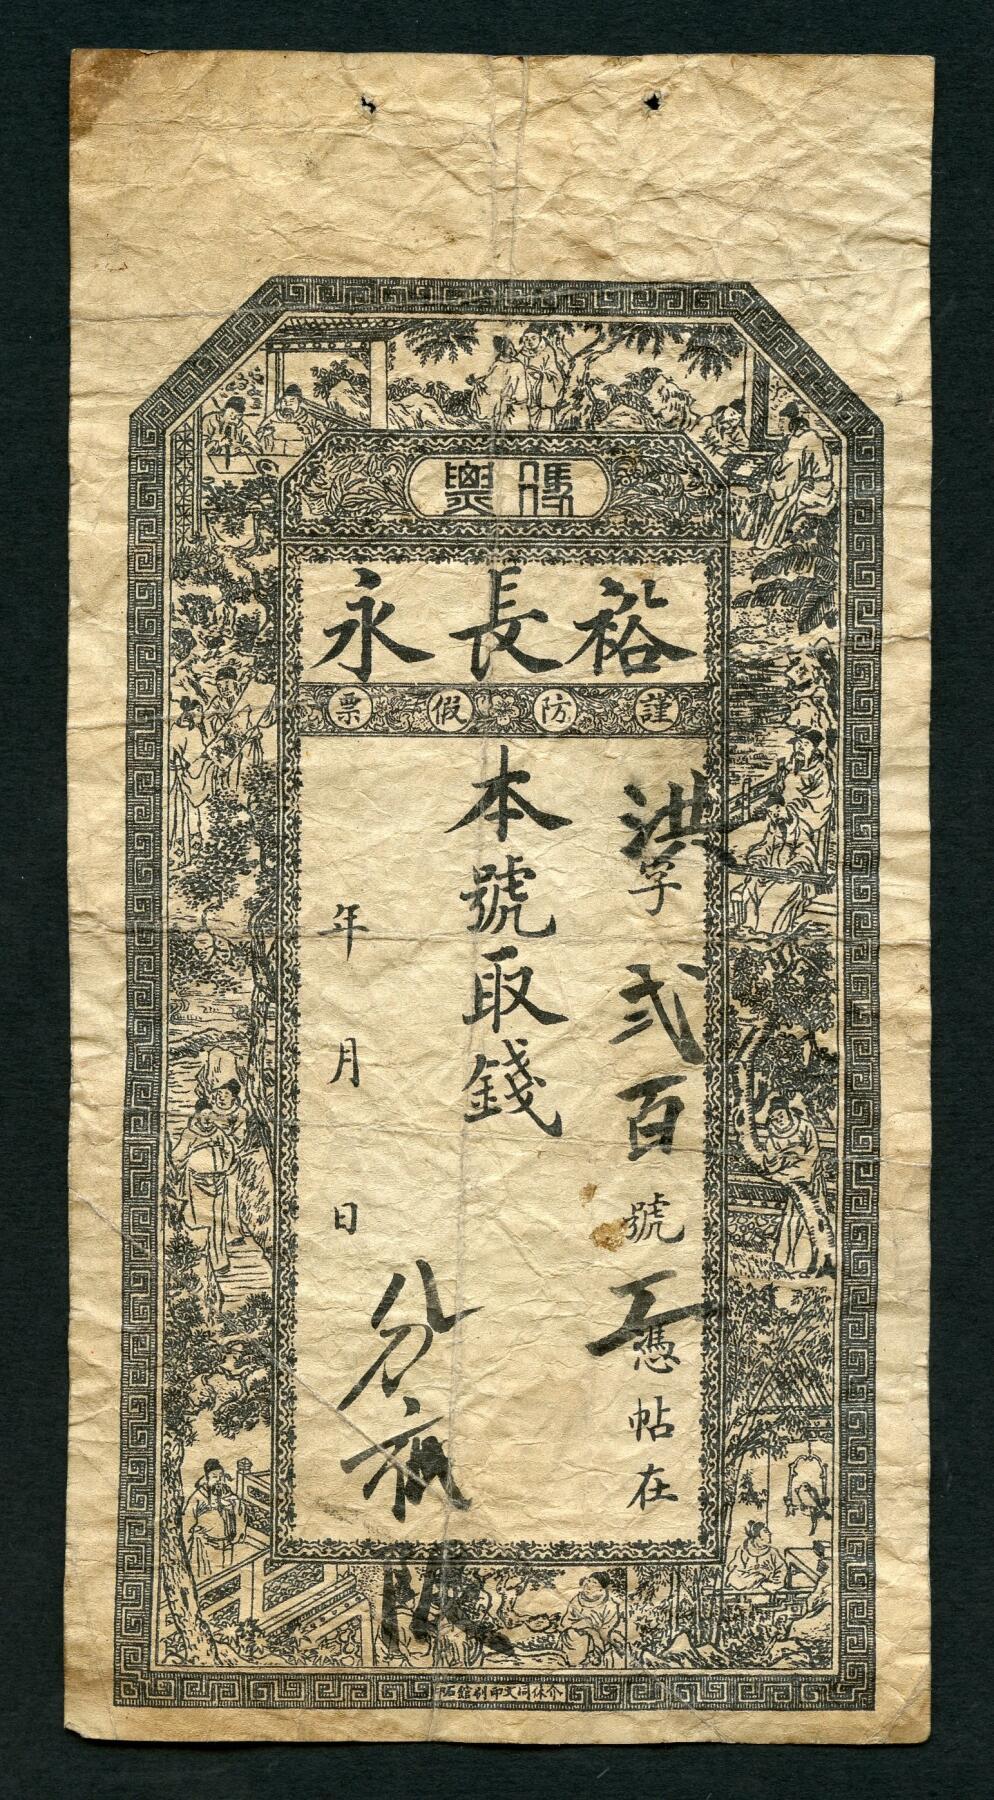 憑票
裕長永
謹防假票
洪字弍百號
憑帖在
本號取錢
年月日
介休同文印刷館石印